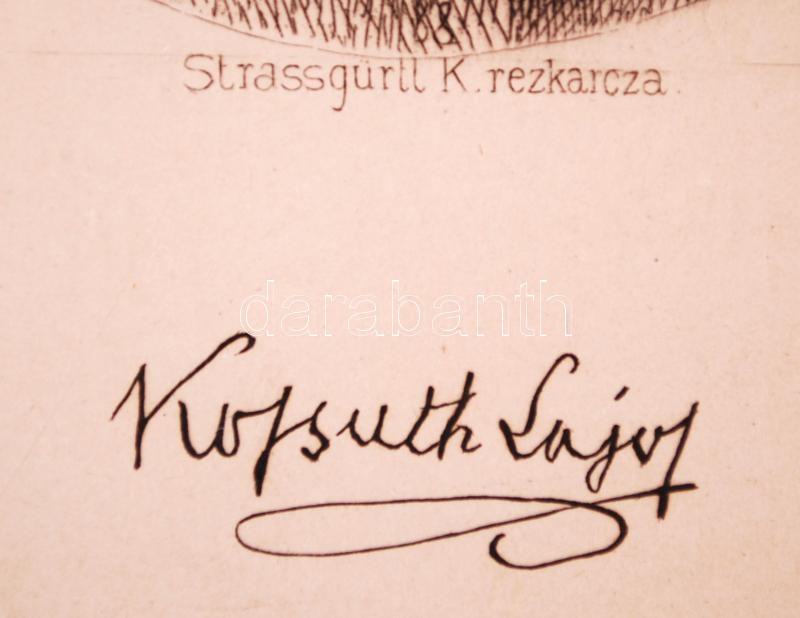 Strassgürtl K. rezkarcza.
darabanth
Kossuth Lajos